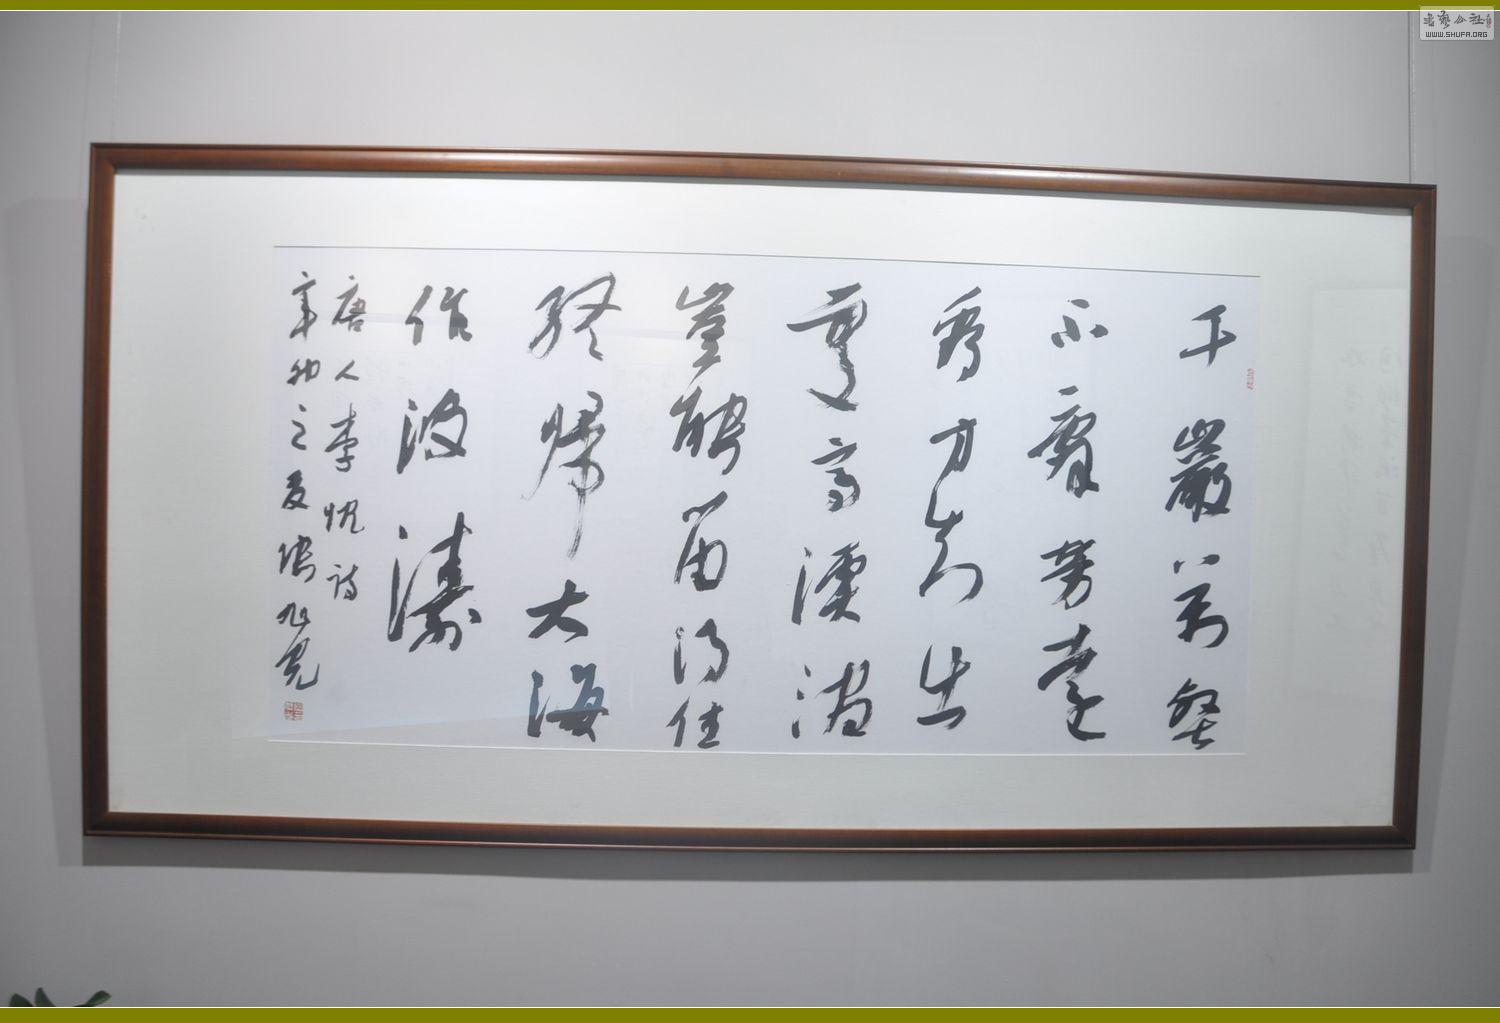 千巖萬壑
不辭勞遠
看方知出
處高溪澗
豈能留得住
終歸大海
作波濤
唐人李忱詩
辛卯之夏張旭光
書藝公社
WWW.SHUFA.ORG